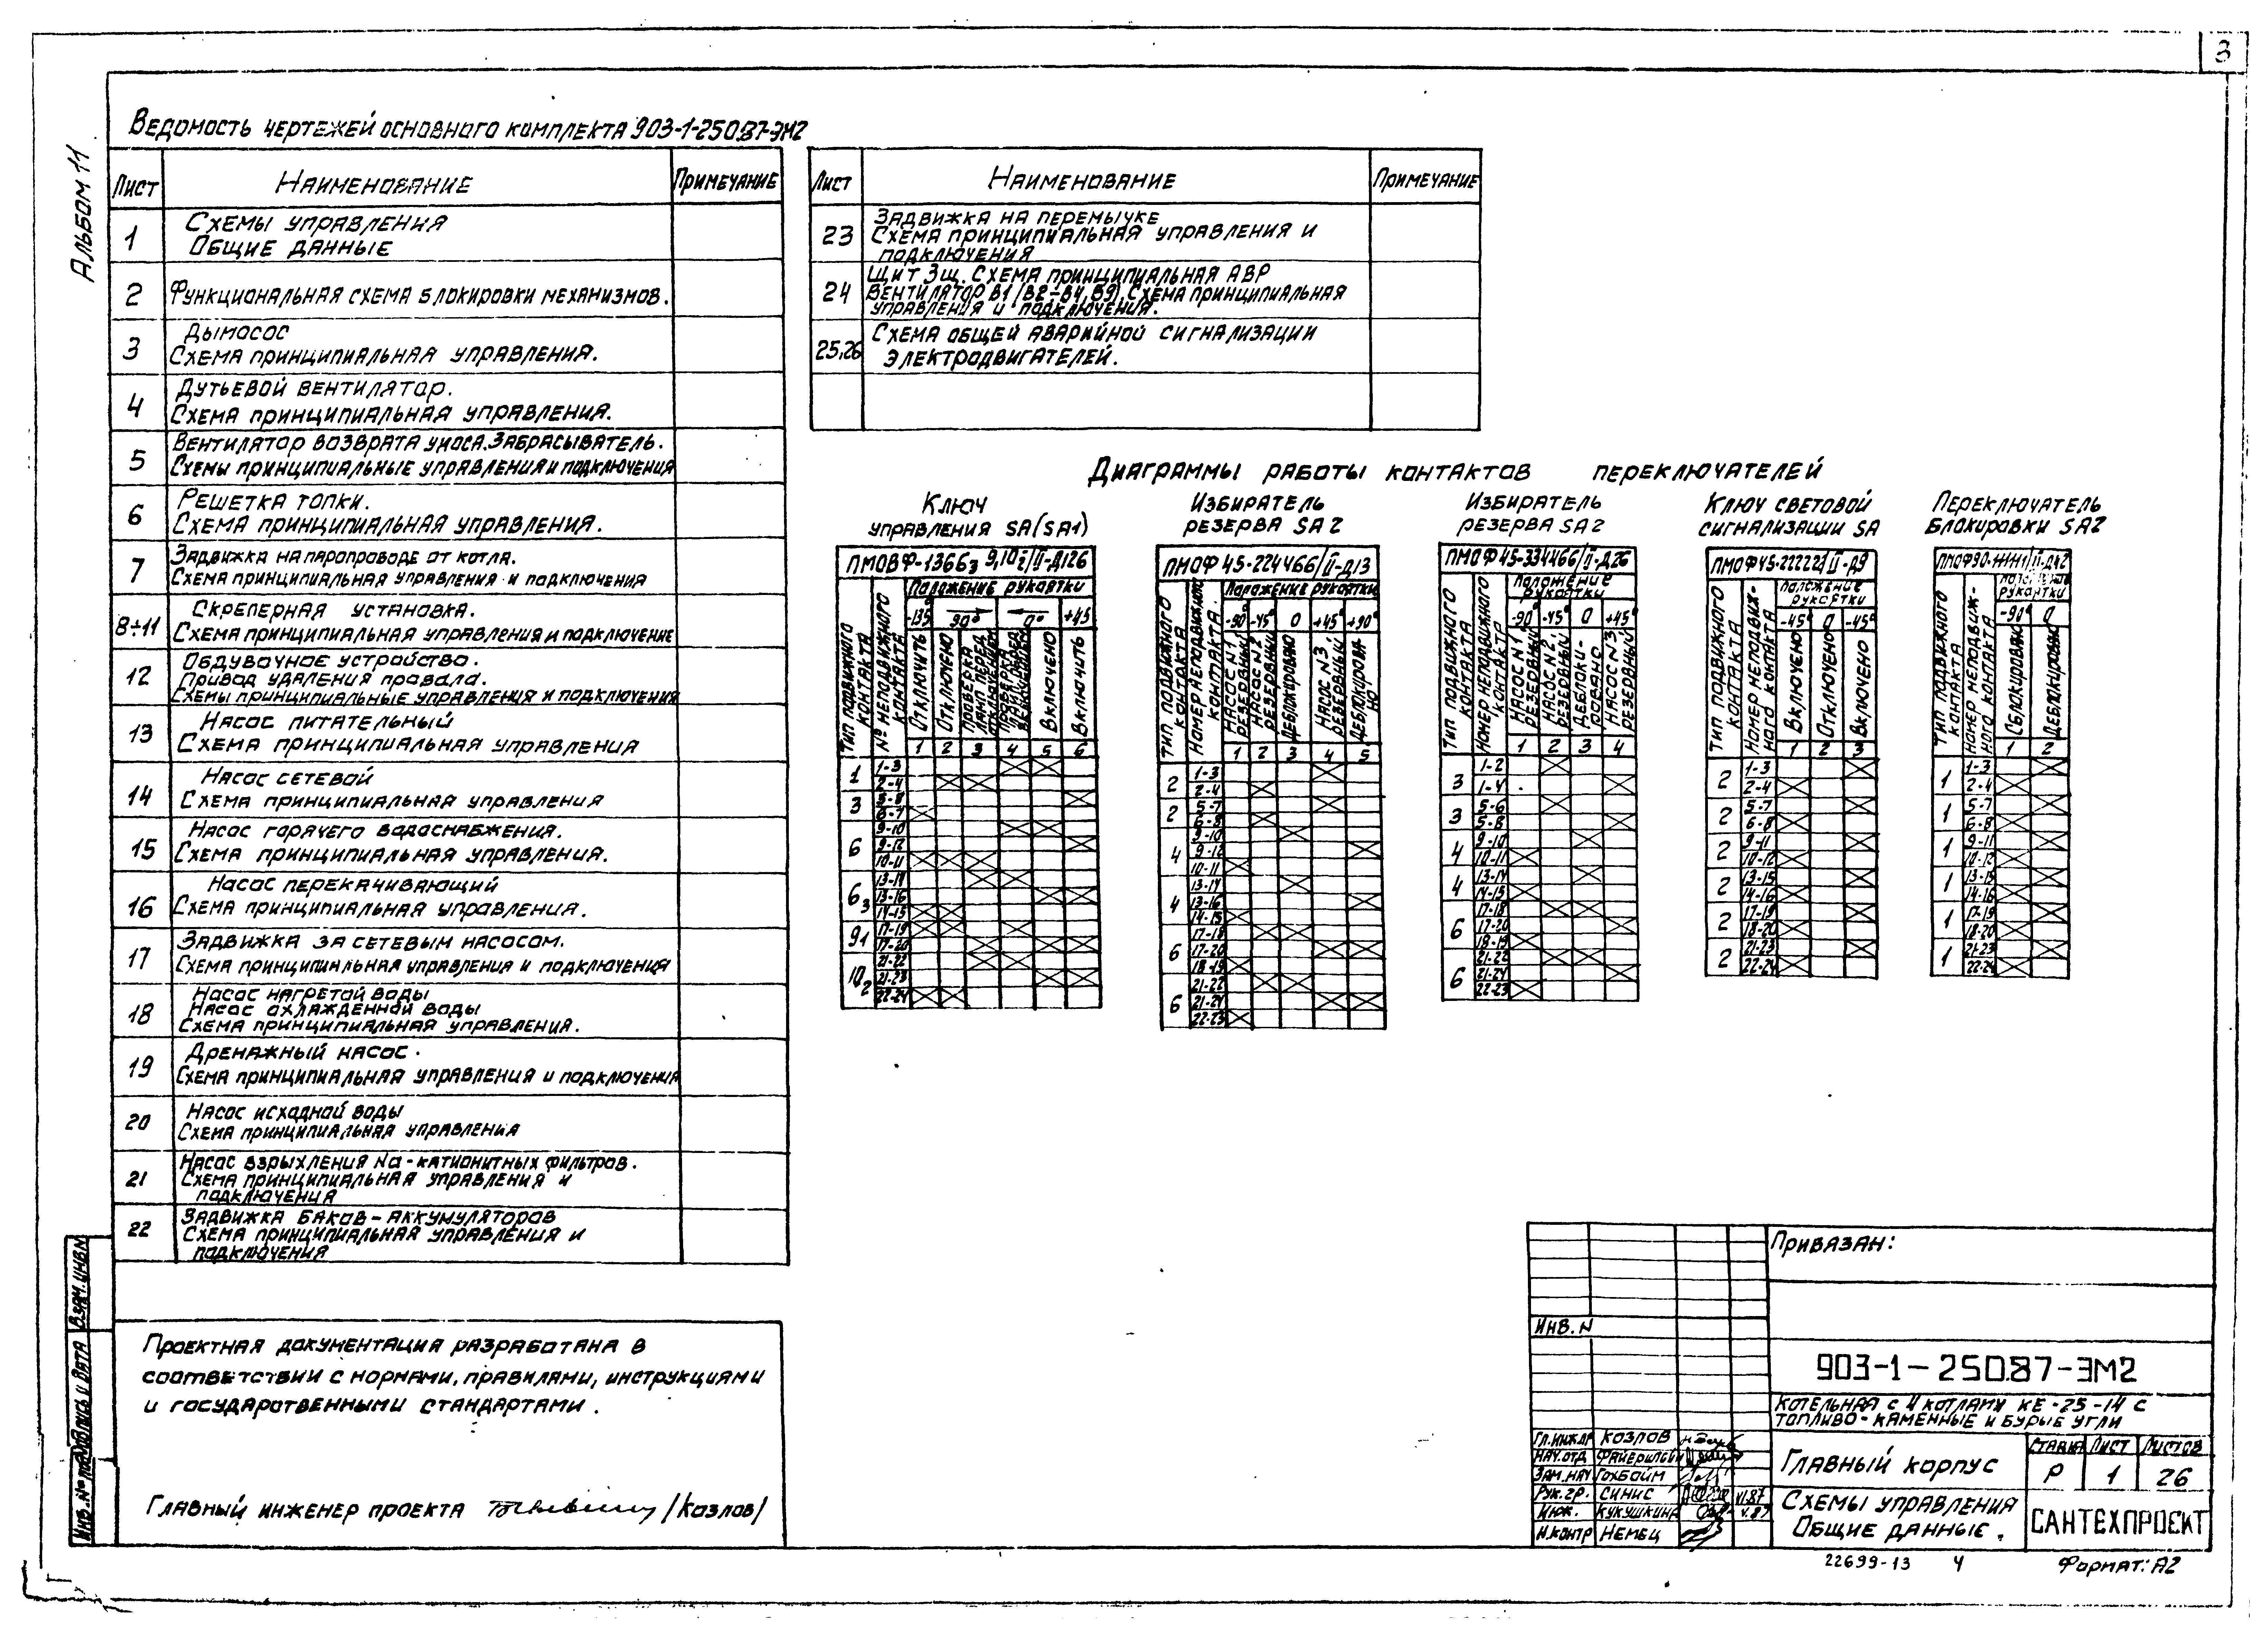 3
Альбом 11
Ведомость чертежей основного комплекта 903-1-250.87-ЭМ2
Лист Наименование Примечание
1 Схемы управления
Общие данные
2 Функциональная схема блокировки механизмов.
3 Дымосос
Схема принципиальная управления.
4 Дутьевой вентилятор.
Схема принципиальная управления.
5 Вентилятор возврата уноса. Забрасыватель.
Схемы принципиальные управления и подключения
6 Решетка топки.
Схема принципиальная управления.
7 Задвижка на паропроводе от котла.
Схема принципиальная управления и подключения
8÷11 Скреперная установка.
Схема принципиальная управления и подключение
12 Обдувочное устройство.
Привод удаления провала.
Схемы принципиальные управления и подключения
13 Насос питательный
Схема принципиальная управления
14 Насос сетевой
Схема принципиальная управления
15 Насос горячего водоснабжения.
Схема принципиальная управления.
16 Насос перекачивающий
Схема принципиальная управления.
17 Задвижка за сетевым насосом.
Схема принципиальная управления и подключения
18 Насос нагретой воды
Насос охлажденной воды
Схема принципиальная управления.
19 Дренажный насос.
Схема принципиальная управления и подключения
20 Насос исходной воды
Схема принципиальная управления
21 Насос взрыхления Na-катионитных фильтров.
Схема принципиальная управления и
подключения
22 Задвижка баков-аккумуляторов
Схема принципиальная управления и
подключения
Лист Наименование Примечание
23 Задвижка на перемычке
Схема принципиальная управления и
подключения
24 Щит 3щ. Схема принципиальная АВР
Вентилятор В1 (В2-В4, В9) Схема принципиальная
управления и подключения.
25,26 Схема общей аварийной сигнализации
электродвигателей.
Диаграммы работы контактов переключателей
Ключ
управления SA (SA1)
ПМОВФ-13663 9,10 2/II-Д126
Тип подвижного контакта
№ неподвижного контакта
Положение рукоятки
-135° 90° 0° +45
Отключить
Отключено
Включено
Включить
1 2 3 4 5 6
1 1-3
2-4
3 5-8
6-7
6 9-10
9-12
10-11
6з 13-14
13-16
14-15
91 17-19
17-20
10 2 21-22
21-23
22-24
Избиратель
резерва SA2
ПМОФ45-224466/II-Д13
Тип подвижного контакта
Номер неподвижного контакта.
Положение рукоятки
-90° -45° 0 +45° +90°
Насос N1 резервный
Насос N2 резервный
Деблокировано
Насос N3 резервный
Деблокировано
1 2 3 4 5
2 1-3
2-4
2 5-7
6-8
4 9-10
9-12
10-11
4 13-14
13-16
14-15
6 17-18
17-20
18-19
6 21-22
21-24
22-23
Избиратель
резерва SA2
ПМОФ45-334466/II-Д26
Тип подвижного контакта
Номер неподвижного контакта
Положение рукоятки
-90° -45° 0 +45°
Насос N1 резервный
Насос N2, резервный
Деблокировано
Насос N3 резервный
1 2 3 4
3 1-2
1-4
3 5-6
5-8
4 9-10
10-11
4 13-14
14-15
6 17-18
17-20
18-19
6 21-22
21-24
22-23
Ключ световой
сигнализации SA
ПМОФ45-222222/II-Д9
Тип подвижного контакта
Номер неподвижного контакта
Положение рукоятки
-45° 0 -45°
Включено
Отключено
Включено
1 2 3
2 1-3
2-4
2 5-7
6-8
2 9-11
10-12
2 13-15
14-16
2 17-19
18-20
2 21-23
22-24
Переключатель
блокировки SA2
ПМОФ90-111111/II-Д42
Тип подвижного контакта
Номер неподвижного контакта
Положение рукоятки
-90° 0
Сблокировано
Деблокировано
1 2
1 1-3
2-4
1 5-7
6-8
1 9-11
10-12
1 13-15
14-16
1 17-19
18-20
1 21-23
22-24
Проектная документация разработана в
соответствии с нормами, правилами, инструкциями
и государственными стандартами.
Главный инженер проекта /Козлов/
Взам. инв N
Подпись и дата
Инв. № подл.
Привязан:
Инв. N
903-1-250.87-ЭМ2
Котельная с 4 котлами КЕ-25-14 с
Топливо-каменные и бурые угли
Гл.инж.пр Козлов
Нач.отд
Зам.нач Гохбойм
Рук.гр. Синис VI.87
Инж. Кукушкина V.87
Н.контр Немец
Главный корпус
Стадия Лист Листов
Р 1 26
Схемы управления
Общие данные.
САНТЕХПРОЕКТ
22699-13 4 Формат: А2